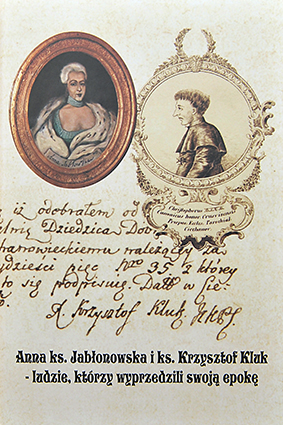 Anna Jabłonowska
Christophorus KLUK
Canonicus honor. Cruszvicensis
Præpos. Eccles. Parochial.
Ciechanov.
iż odebrałem od
Dziedzica Dobr
Ciechanowieckiemu należący za
dzieści pięć Nro 35 z ktorey
to się podpisuię. Datt w Sie
X. Krzysztof Kluk
Anna ks. Jabłonowska i ks. Krzysztof Kluk
- ludzie, którzy wyprzedzili swoją epokę